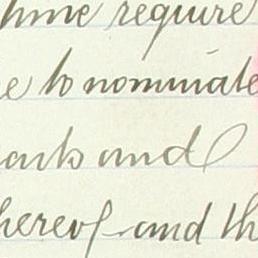 time require
e to nominate
and
hereof and th